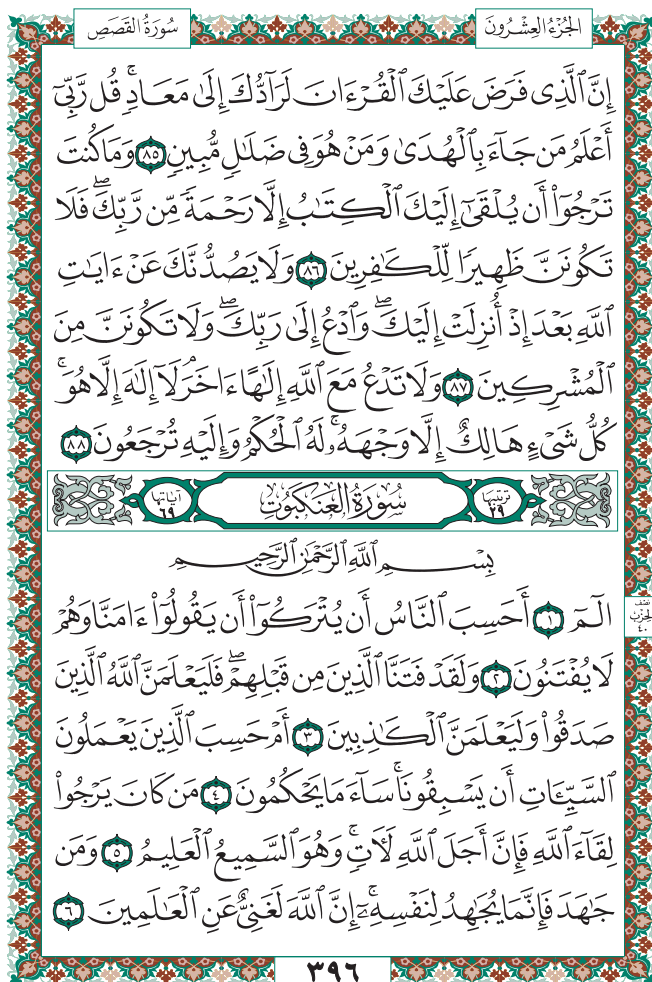 الجُزْءُ العِشْرُونَ
سُورَةُ القَصَصِ
إِنَّ ٱلَّذِى فَرَضَ عَلَيْكَ ٱلْقُرْءَانَ لَرَآدُّكَ إِلَىٰ مَعَادٍۚ قُل رَّبِّىٓ
أَعْلَمُ مَن جَآءَ بِٱلْهُدَىٰ وَمَنْ هُوَ فِى ضَلَٰلٍ مُّبِينٍ ٨٥ وَمَا كُنتَ
تَرْجُوٓا۟ أَن يُلْقَىٰٓ إِلَيْكَ ٱلْكِتَٰبُ إِلَّا رَحْمَةً مِّن رَّبِّكَۖ فَلَا
تَكُونَنَّ ظَهِيرًا لِّلْكَٰفِرِينَ ٨٦ وَلَا يَصُدُّنَّكَ عَنْ ءَايَٰتِ
ٱللَّهِ بَعْدَ إِذْ أُنزِلَتْ إِلَيْكَۖ وَٱدْعُ إِلَىٰ رَبِّكَۖ وَلَا تَكُونَنَّ مِنَ
ٱلْمُشْرِكِينَ ٨٧ وَلَا تَدْعُ مَعَ ٱللَّهِ إِلَٰهًا ءَاخَرَۘ لَآ إِلَٰهَ إِلَّا هُوَۚ
كُلُّ شَىْءٍ هَالِكٌ إِلَّا وَجْهَهُۥۚ لَهُ ٱلْحُكْمُ وَإِلَيْهِ تُرْجَعُونَ ٨٨
ترتيبها ٢٩
سُورَةُ العَنكَبُوتِ
آياتها ٦٩
بِسْمِ ٱللَّهِ ٱلرَّحْمَٰنِ ٱلرَّحِيمِ
الٓمٓ ١ أَحَسِبَ ٱلنَّاسُ أَن يُتْرَكُوٓا۟ أَن يَقُولُوٓا۟ ءَامَنَّا وَهُمْ
لَا يُفْتَنُونَ ٢ وَلَقَدْ فَتَنَّا ٱلَّذِينَ مِن قَبْلِهِمْۖ فَلَيَعْلَمَنَّ ٱللَّهُ ٱلَّذِينَ
صَدَقُوا۟ وَلَيَعْلَمَنَّ ٱلْكَٰذِبِينَ ٣ أَمْ حَسِبَ ٱلَّذِينَ يَعْمَلُونَ
ٱلسَّيِّـَٔاتِ أَن يَسْبِقُونَاۚ سَآءَ مَا يَحْكُمُونَ ٤ مَن كَانَ يَرْجُوا۟
لِقَآءَ ٱللَّهِ فَإِنَّ أَجَلَ ٱللَّهِ لَـَٔاتٍۚ وَهُوَ ٱلسَّمِيعُ ٱلْعَلِيمُ ٥ وَمَن
جَٰهَدَ فَإِنَّمَا يُجَٰهِدُ لِنَفْسِهِۦٓۚ إِنَّ ٱللَّهَ لَغَنِىٌّ عَنِ ٱلْعَٰلَمِينَ ٦
نصف
الحزب
٤٠
٣٩٦